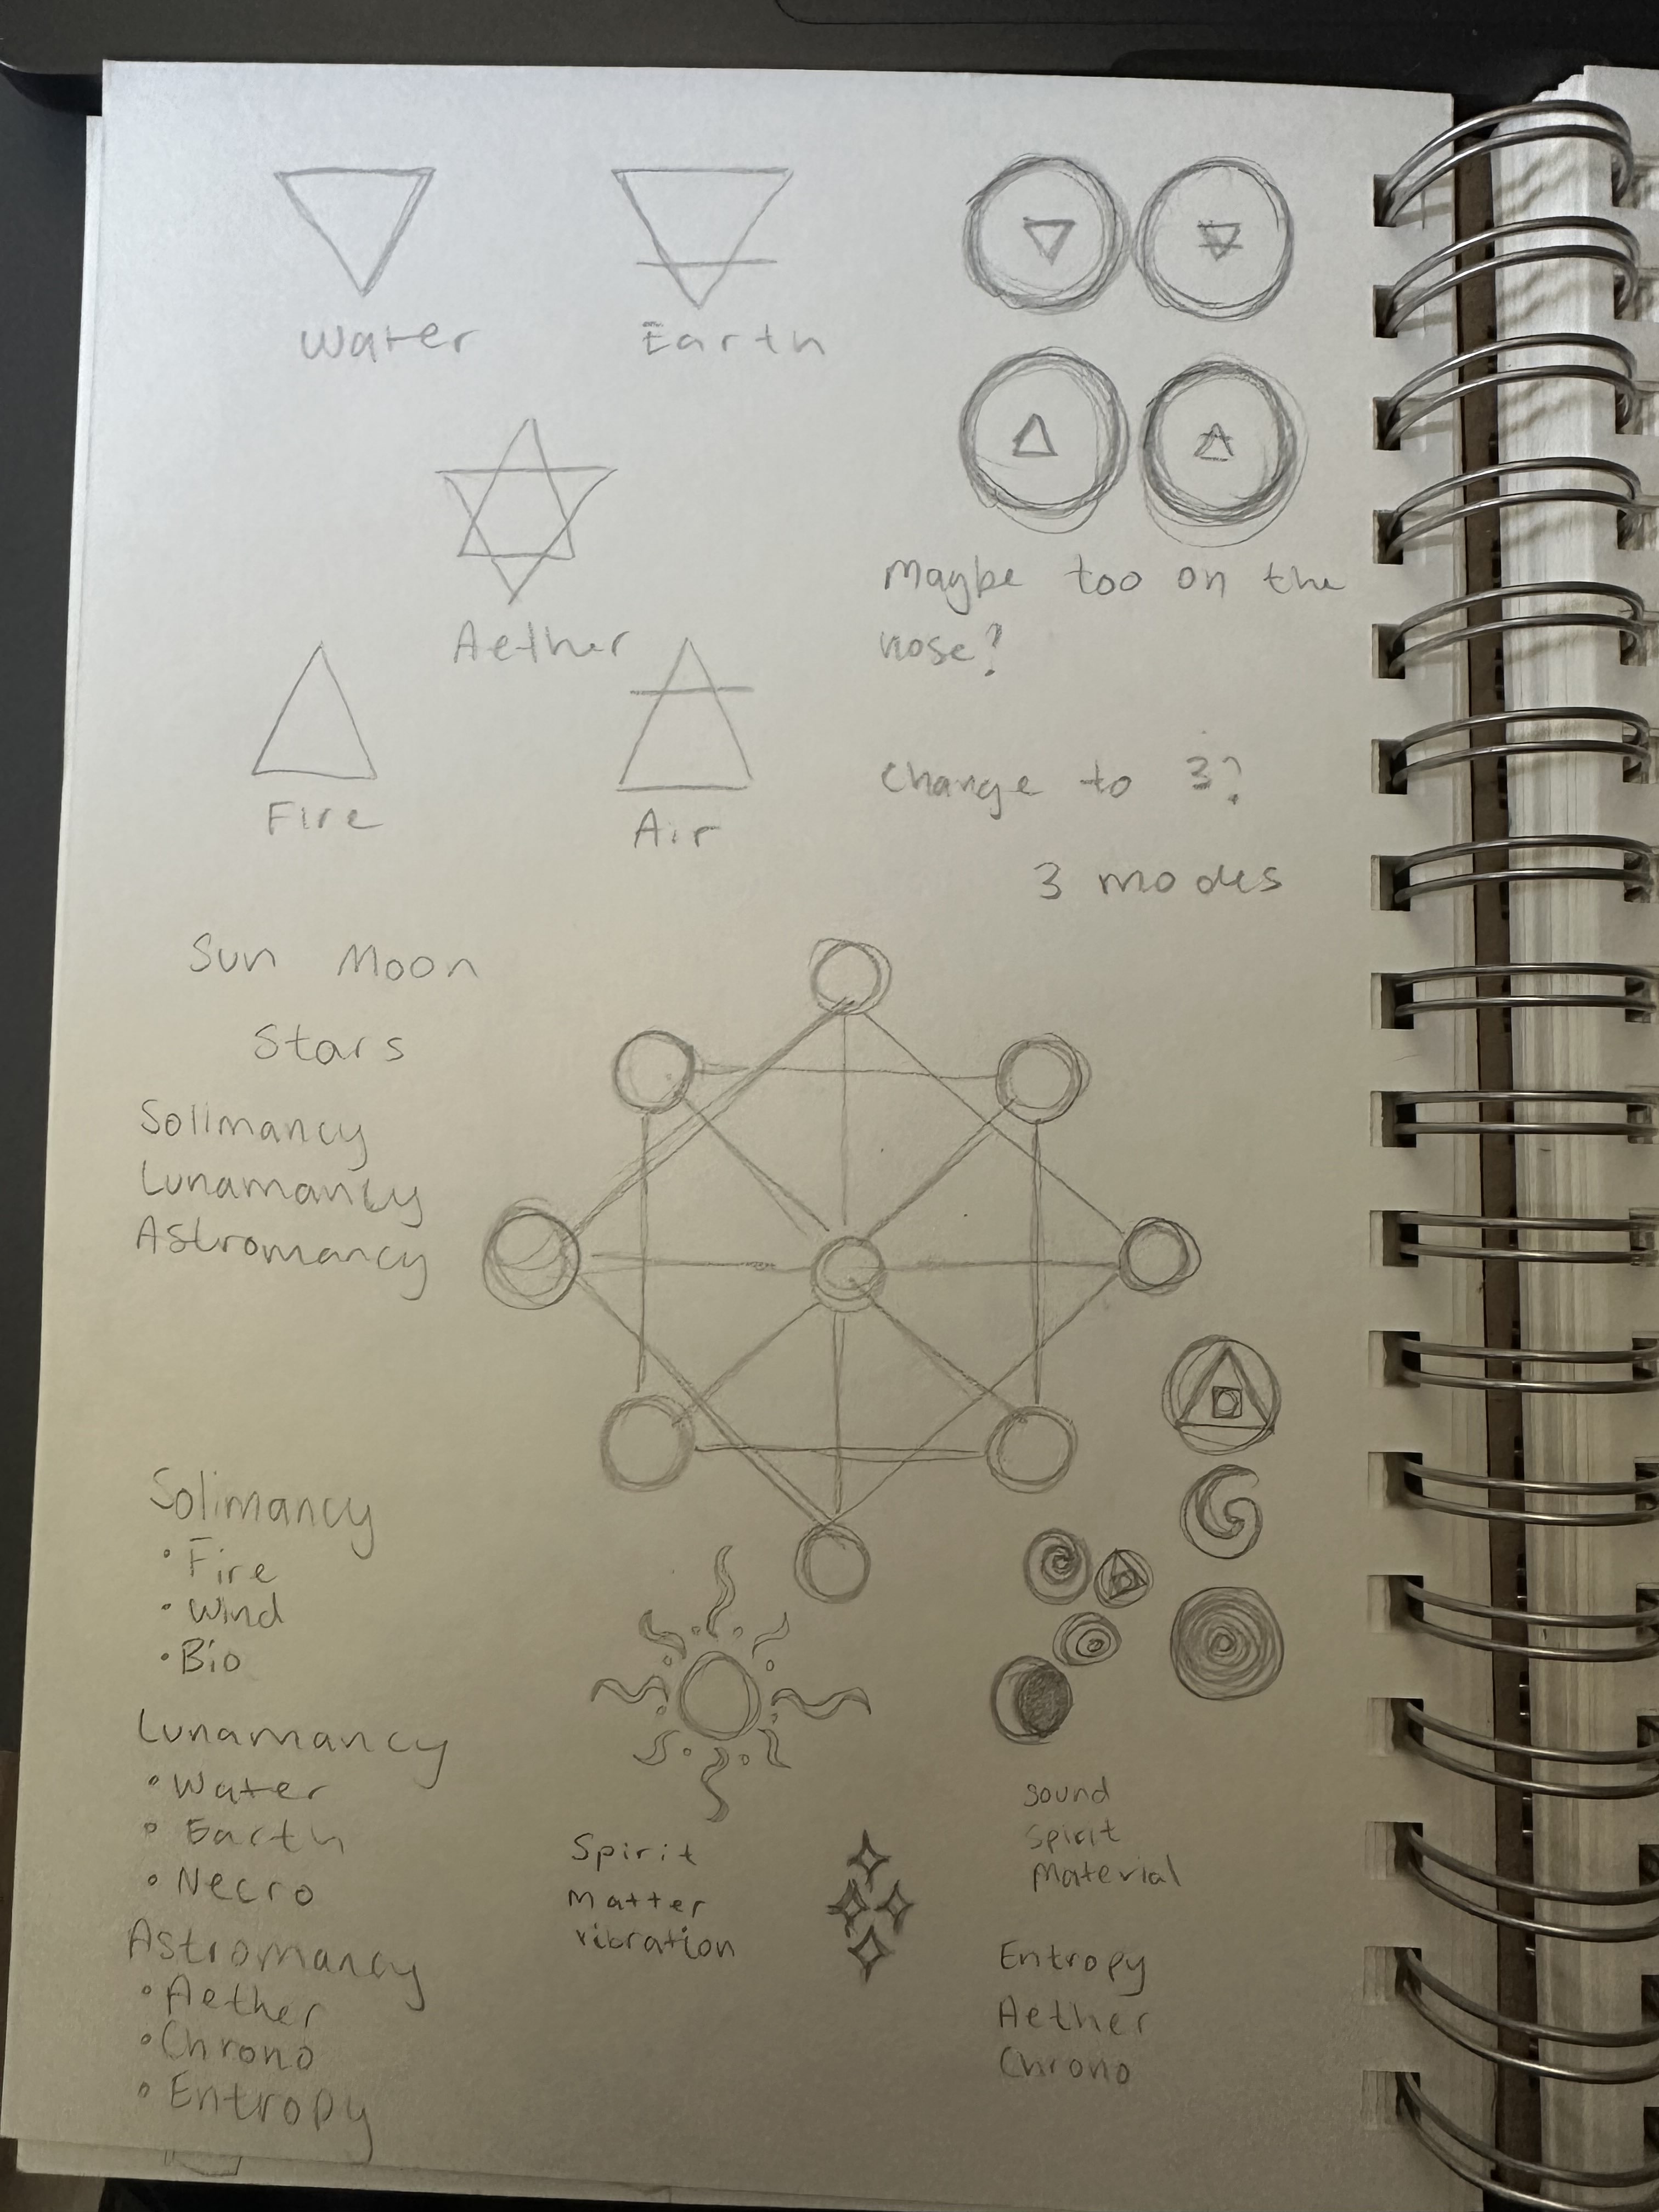 Water
Earth
Aether
Fire
Air
Maybe too on the
nose?
Change to 3?
3 modes
Sun Moon
Stars
Solimancy
Lunamancy
Astromancy
Solimancy
• Fire
• Wind
• Bio
Lunamancy
• Water
• Earth
• Necro
Astromancy
• Aether
• Chrono
• Entropy
Spirit
Matter
vibration
sound
spirit
material
Entropy
Aether
Chrono